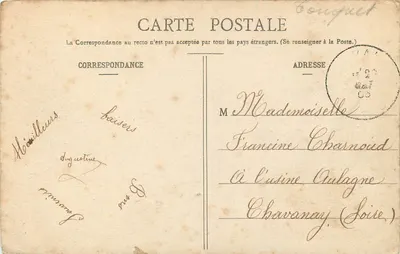 Couquet
CARTE POSTALE
La Correspondance au recto n'est pas acceptée par tous les pays étrangers. (Se renseigner à la Poste.)
CORRESPONDANCE
ADRESSE
Meilleurs
baisers
Augustine
Bons
Souvenirs
M Mademoiselle
Francine Charnoud
A l'usine Aulagne
Chavanay (Loire)